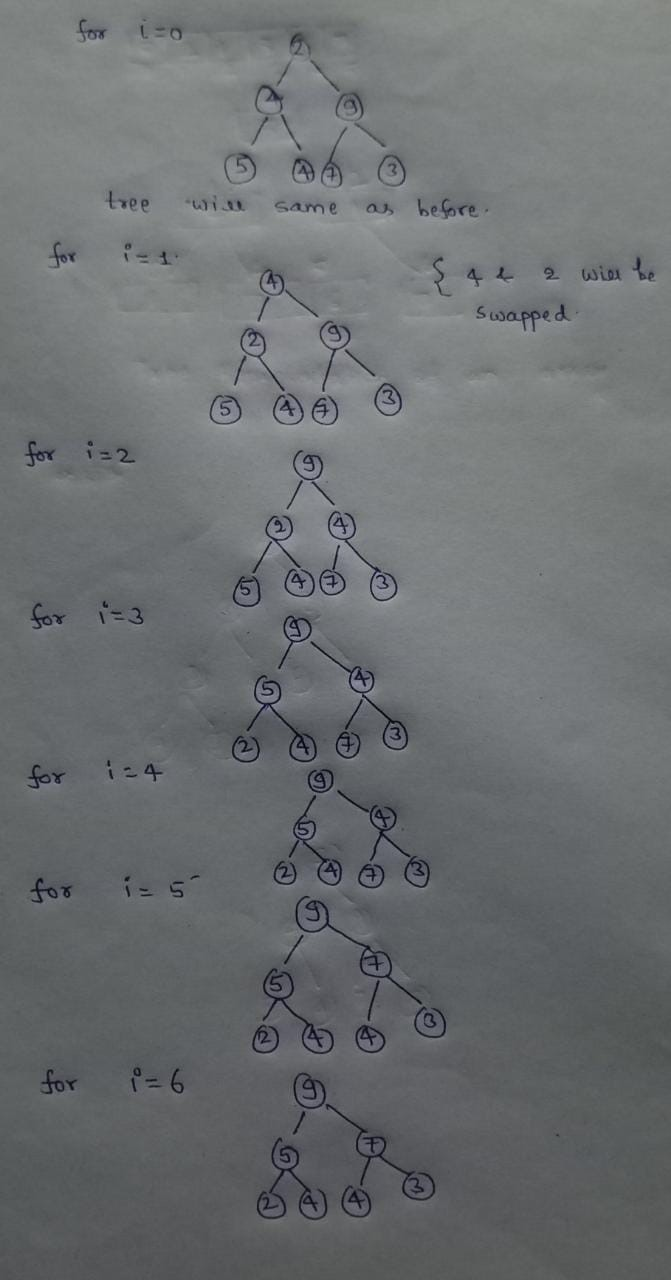 for i=0
2
4 9
5 4 7 3
tree will same as before.
for i=1.
{ 4 & 2 will be
swapped.
4
2 9
5 4 7 3
for i=2
9
2 4
5 4 7 3
for i=3
9
5 4
2 4 7 3
for i=4
9
5 4
2 4 7 3
for i=5
9
5 7
2 4 4 3
for i=6
9
5 7
2 4 4 3